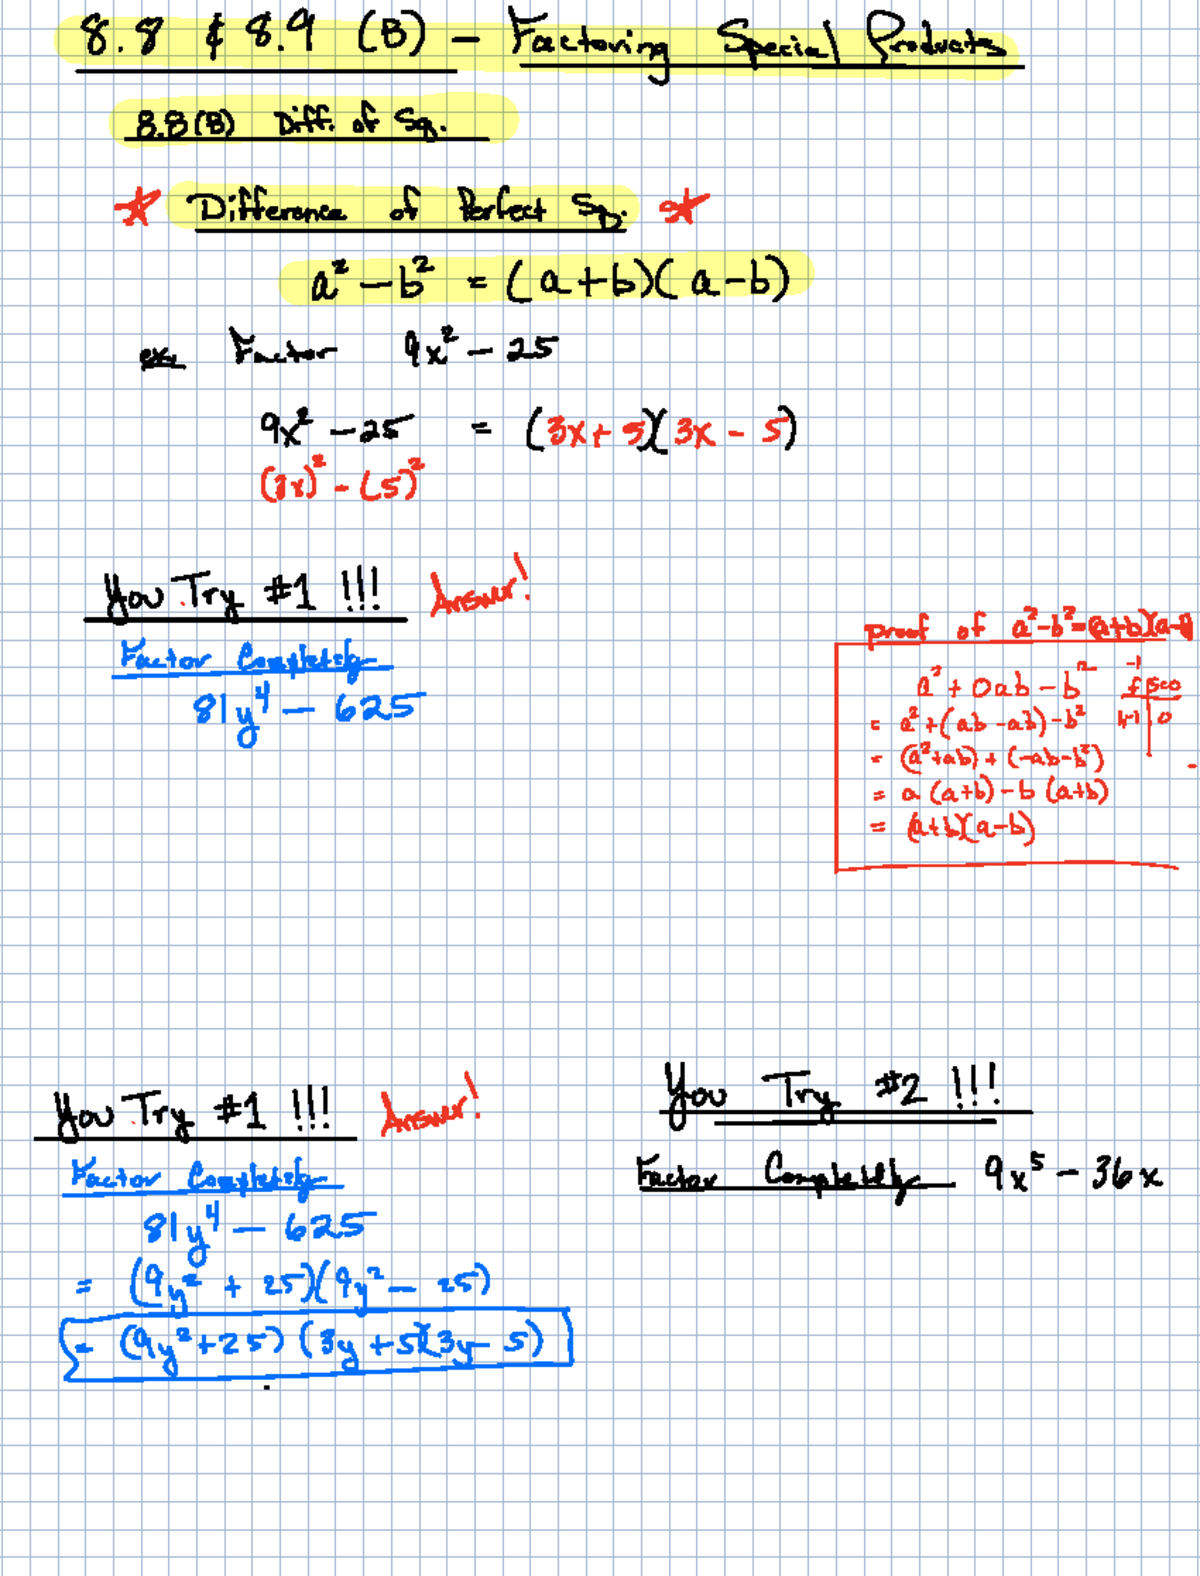 8.8 & 8.9 (B) - Factoring Special Products
8.8(B) Diff. of Sq.
Difference of Perfect Sq.
a² - b² = (a+b)(a-b)
ex. Factor 9x² - 25
9x² - 25 = (3x + 5)(3x - 5)
(3x)² - (5)²
You Try #1 !!! Answer!
Factor Completely
81y⁴ - 625
proof of a²-b²=(a+b)(a-b)
a² + 0ab - b²
= a² + (ab - ab) - b²
= (a²+ab) + (-ab-b²)
= a (a+b) - b (a+b)
= (a+b)(a-b)
-1
1,-1 0
You Try #1 !!! Answer!
Factor Completely
81y⁴ - 625
= (9y² + 25)(9y² - 25)
= (9y²+25) (3y+5)(3y-5)
You Try #2 !!!
Factor Completely 9x⁵ - 36x